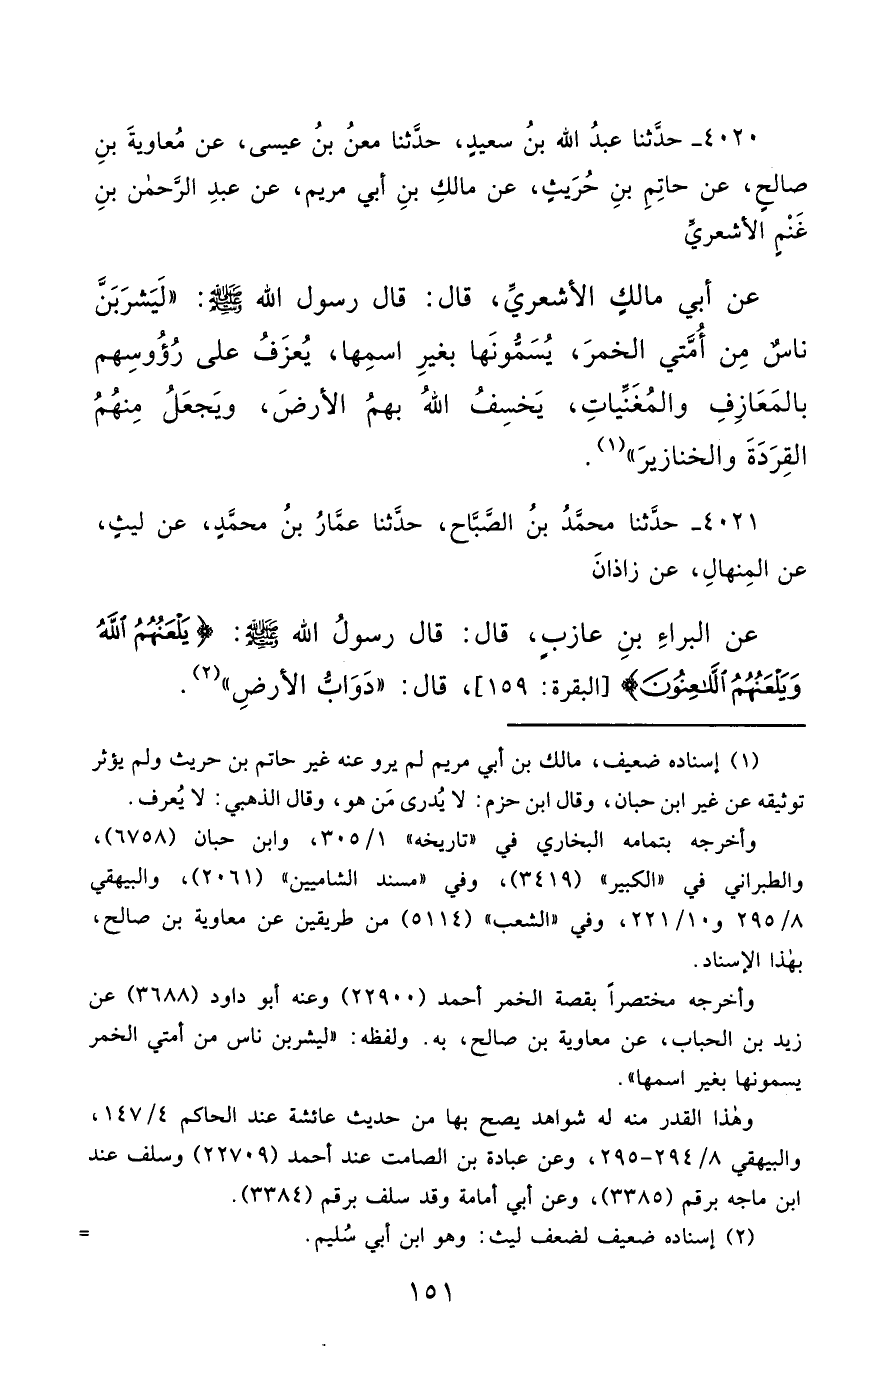 ٤٠٢٠ـ حدَّثنا عبدُ الله بنُ سعيدٍ، حدَّثنا معنُ بنُ عيسى، عن مُعاويةَ بنِ
صالحٍ، عن حاتِمِ بنِ حُرَيثٍ، عن مالكِ بنِ أبي مريم، عن عبدِ الرَّحمٰن بنِ
غَنْمٍ الأشعريِّ
عن أبي مالكٍ الأشعريِّ، قال: قال رسول الله ﷺ: «لَيَشرَبَنَّ
ناسٌ مِن أُمَّتي الخمرَ، يُسَمُّونَها بغيرِ اسمِها، يُعزَفُ على رُؤُوسِهم
بالمَعَازِفِ والمُغَنِّياتِ، يَخسِفُ اللهُ بهمُ الأرضَ، ويَجعَلُ مِنهُمُ
القِرَدَةَ والخنازيرَ»(١).
٤٠٢١ـ حدَّثنا محمَّدُ بنُ الصَّبَّاح، حدَّثنا عمَّارُ بنُ محمَّدٍ، عن ليثٍ،
عن المِنهالِ، عن زاذانَ
عن البراءِ بنِ عازبٍ، قال: قال رسولُ الله ﷺ: ﴿يَلْعَنُهُمُ ٱللَّهُ
وَيَلْعَنُهُمُ ٱللَّٰعِنُونَ﴾ [البقرة: ١٥٩]، قال: «دَوَابُّ الأرضِ»(٢).
(١) إسناده ضعيف، مالك بن أبي مريم لم يرو عنه غير حاتم بن حريث ولم يؤثر
توثيقه عن غير ابن حبان، وقال ابن حزم: لا يُدرى مَن هو، وقال الذهبي: لا يُعرف.
وأخرجه بتمامه البخاري في «تاريخه» ٣٠٥/١، وابن حبان (٦٧٥٨)،
والطبراني في «الكبير» (٣٤١٩)، وفي «مسند الشاميين» (٢٠٦١)، والبيهقي
٢٩٥/٨ و٢٢١/١٠، وفي «الشعب» (٥١١٤) من طريقين عن معاوية بن صالح،
بهٰذا الإسناد.
وأخرجه مختصراً بقصة الخمر أحمد (٢٢٩٠٠) وعنه أبو داود (٣٦٨٨) عن
زيد بن الحباب، عن معاوية بن صالح، به. ولفظه: «ليشربن ناس من أمتي الخمر
يسمونها بغير اسمها».
وهٰذا القدر منه له شواهد يصح بها من حديث عائشة عند الحاكم ١٤٧/٤،
والبيهقي ٢٩٤/٨-٢٩٥، وعن عبادة بن الصامت عند أحمد (٢٢٧٠٩) وسلف عند
ابن ماجه برقم (٣٣٨٥)، وعن أبي أمامة وقد سلف برقم (٣٣٨٤).
(٢) إسناده ضعيف لضعف ليث: وهو ابن أبي سُليم. =
١٥١